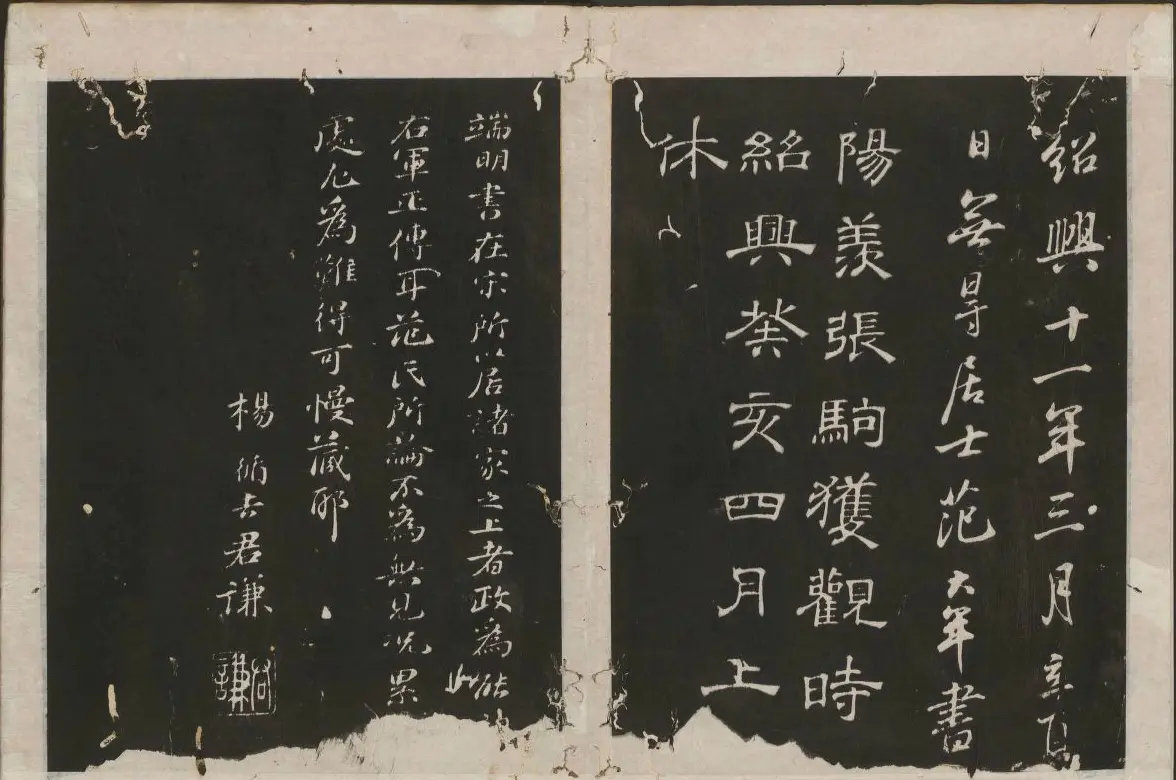 紹興十一年三月立夏
日無㝵居士范大年書
陽羨張駒獲觀時
紹興癸亥四月上
休
端明書在宋所以居諸家之上者政為能
右軍正傳耳范氏所論不為無見況累
處尤為難得可慢藏耶
楊循吉君謙